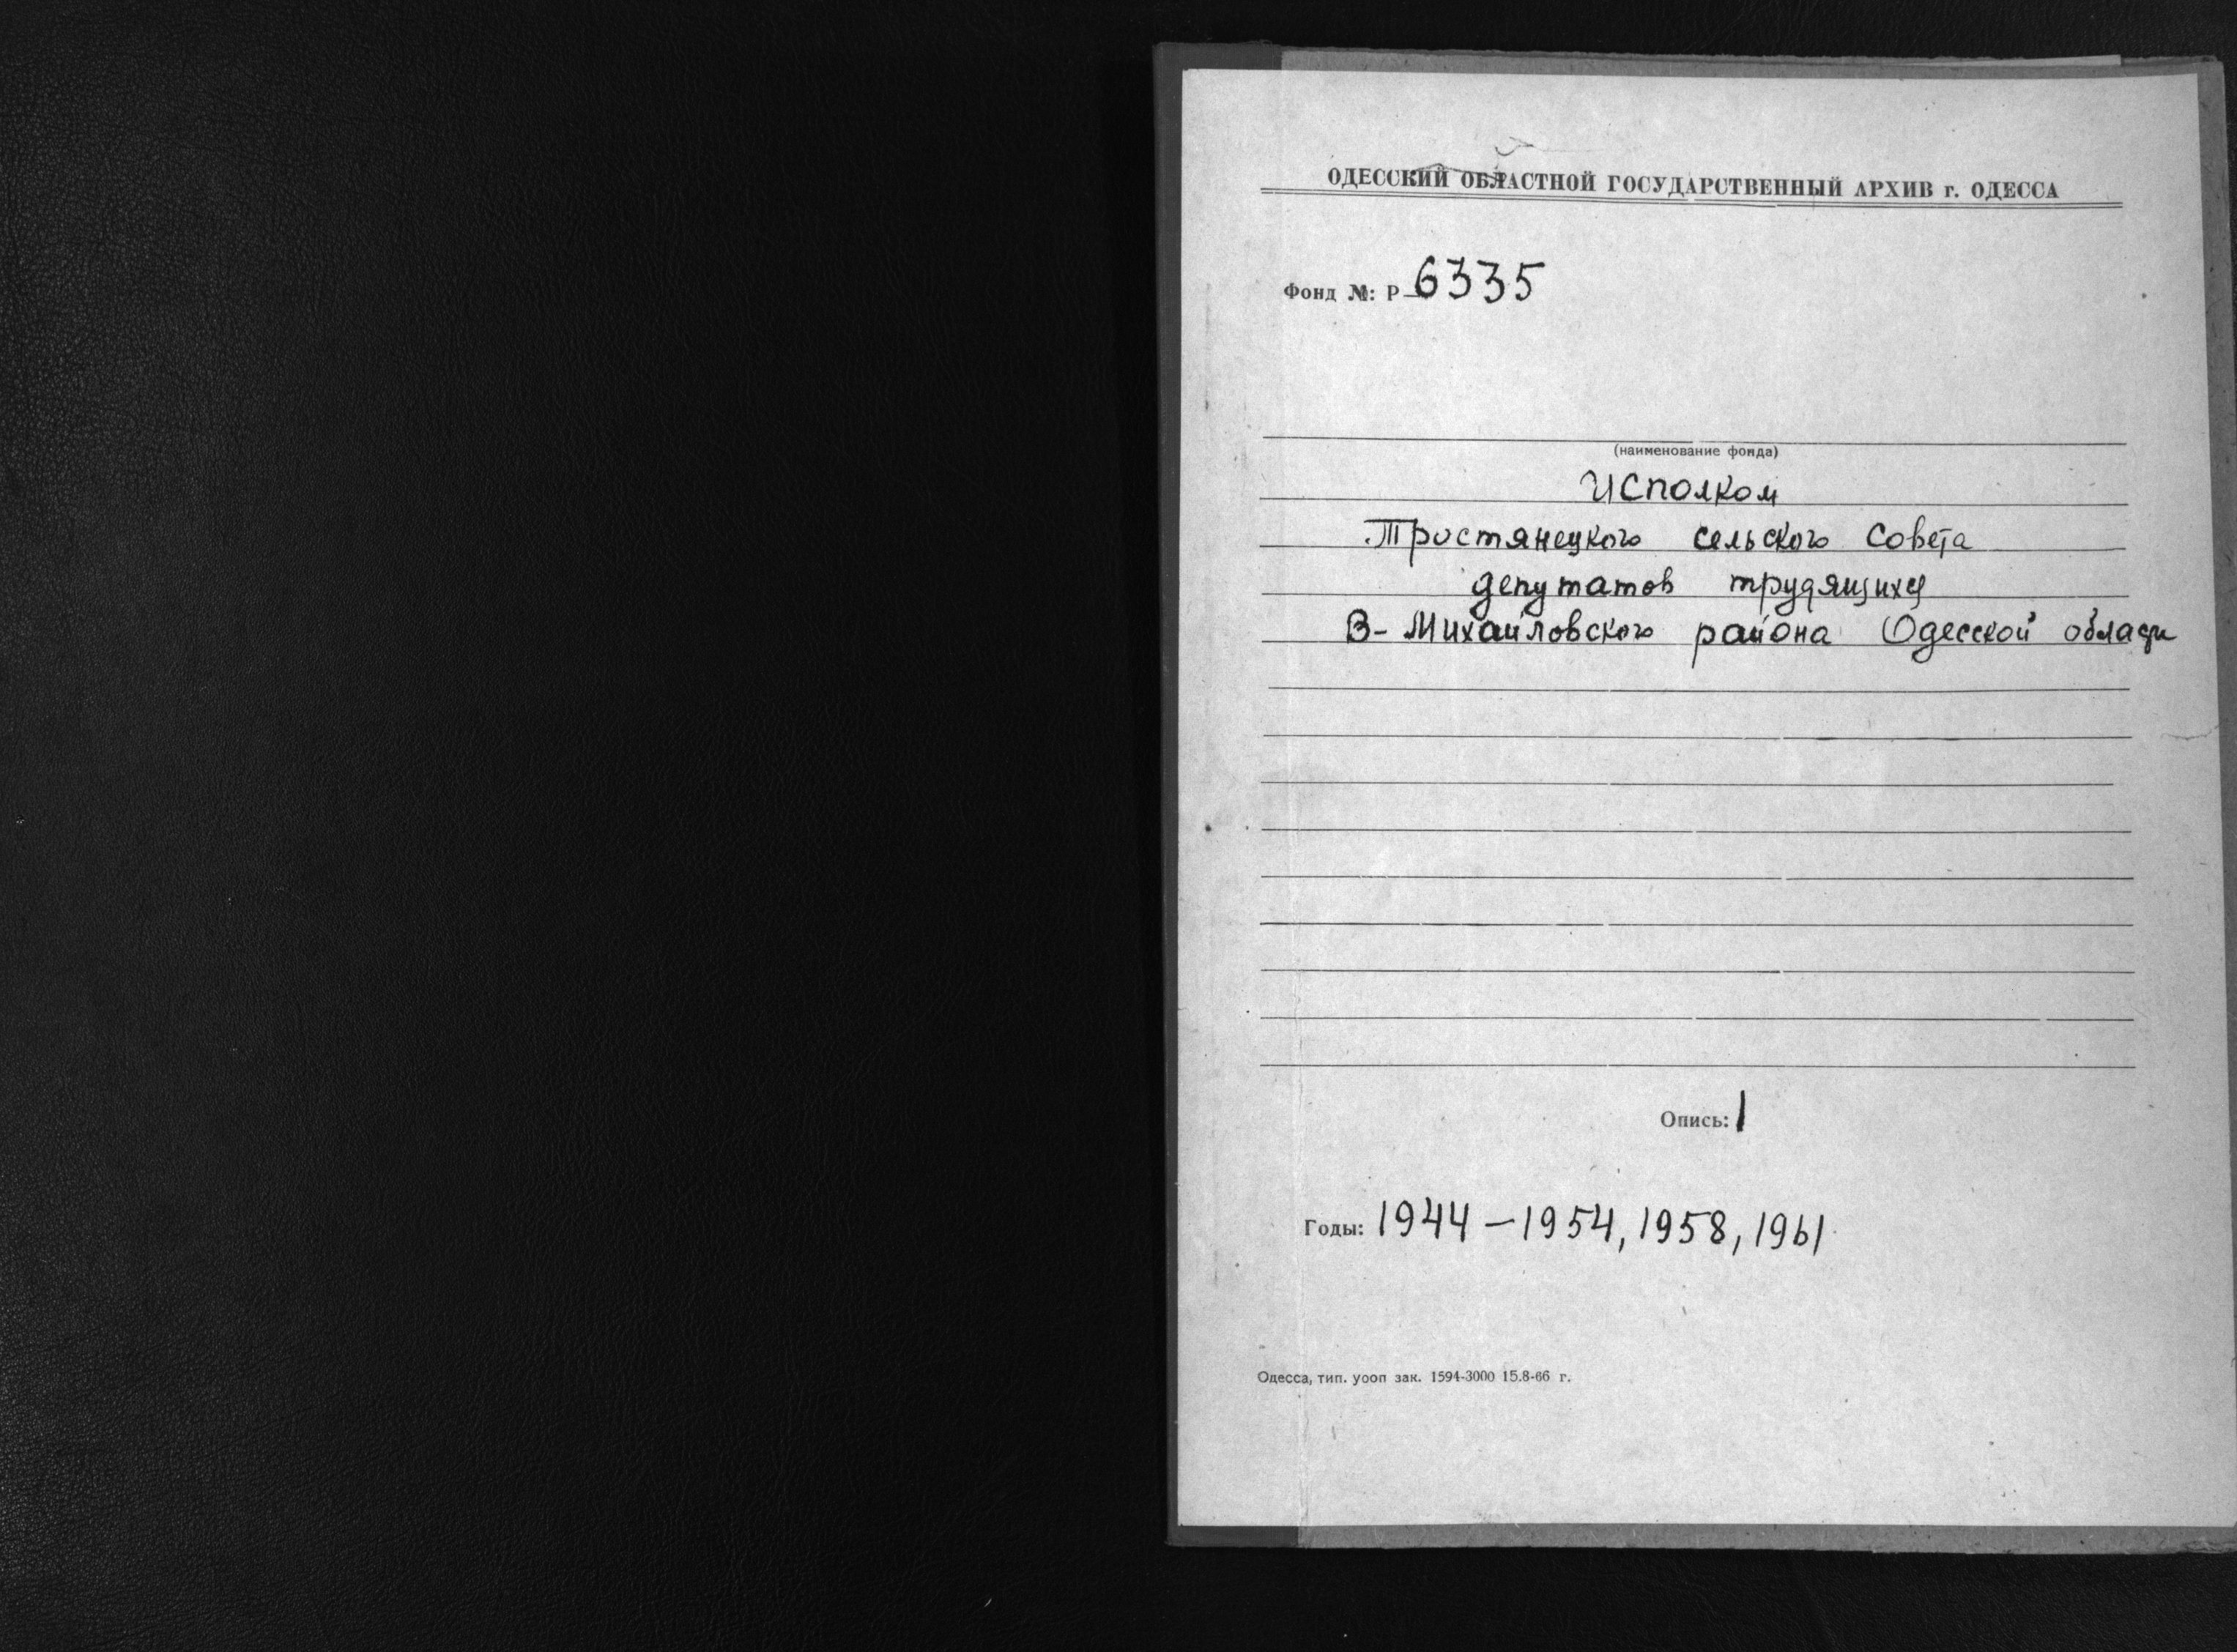 ОДЕССКИЙ ОБЛАСТНОЙ ГОСУДАРСТВЕННЫЙ АРХИВ г. ОДЕССА
Фонд №: Р-6335
(наименование фонда)
Исполком
Тростянецкого сельского Совета
депутатов трудящихся
В-Михайловского района Одесской области
Опись: 1
Годы: 1944-1954, 1958, 1961
Одесса, тип. уооп зак. 1594-3000 15.8-66 г.